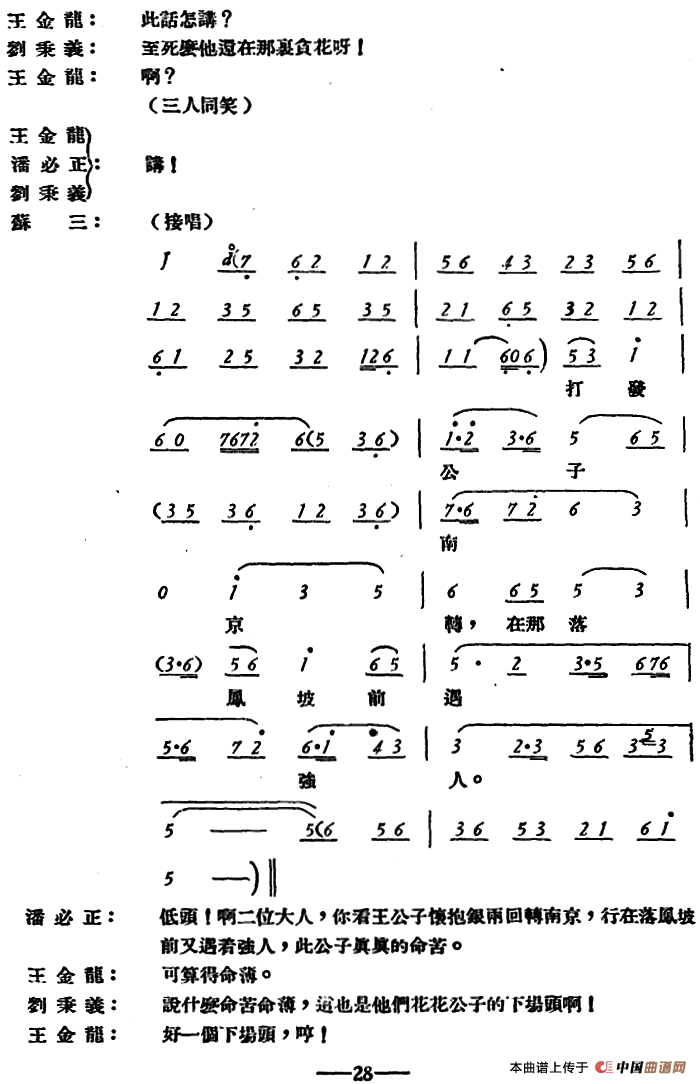 王金龍： 此話怎講？
劉秉義： 至死麽他還在那裏貪花呀！
王金龍： 啊？
（三人同笑）
王金龍
潘必正： 講！
劉秉義
蘇 三： （接唱）
1 (7 6 2 1 2 | 5 6 4 3 2 3 5 6 |
1 2 3 5 6 5 3 5 | 2 1 6 5 3 2 1 2 |
6 1 2 5 3 2 1 2 6 | 1 1 6 0 6) 5 3 i
打 發
6 0 7 6 7 2 6 (5 3 6) | i·2 3·6 5 6 5
公 子
(3 5 3 6 1 2 3 6) | 7·6 7 2 6 3
南
0 i 3 5 | 6 6 5 5 3
京 轉，在那 落
(3·6) 5 6 i 6 5 | 5· 2 3·5 6 7 6
鳳 坡 前 遇
5·6 7 2 6·i 4 3 | 3 2·3 5 6 3 5 3
強 人。
5 — 5 (6 5 6 | 3 6 5 3 2 1 6 i
5 —) ‖
潘必正： 低頭！啊二位大人，你看王公子懷抱銀兩回轉南京，行在落鳳坡
前又遇若強人，此公子眞眞的命苦。
王金龍： 可算得命薄。
劉秉義： 說什麽命苦命薄，這也是他們花花公子的下場頭啊！
王金龍： 好一個下場頭，哼！
—28—
本曲谱上传于 中国曲谱网